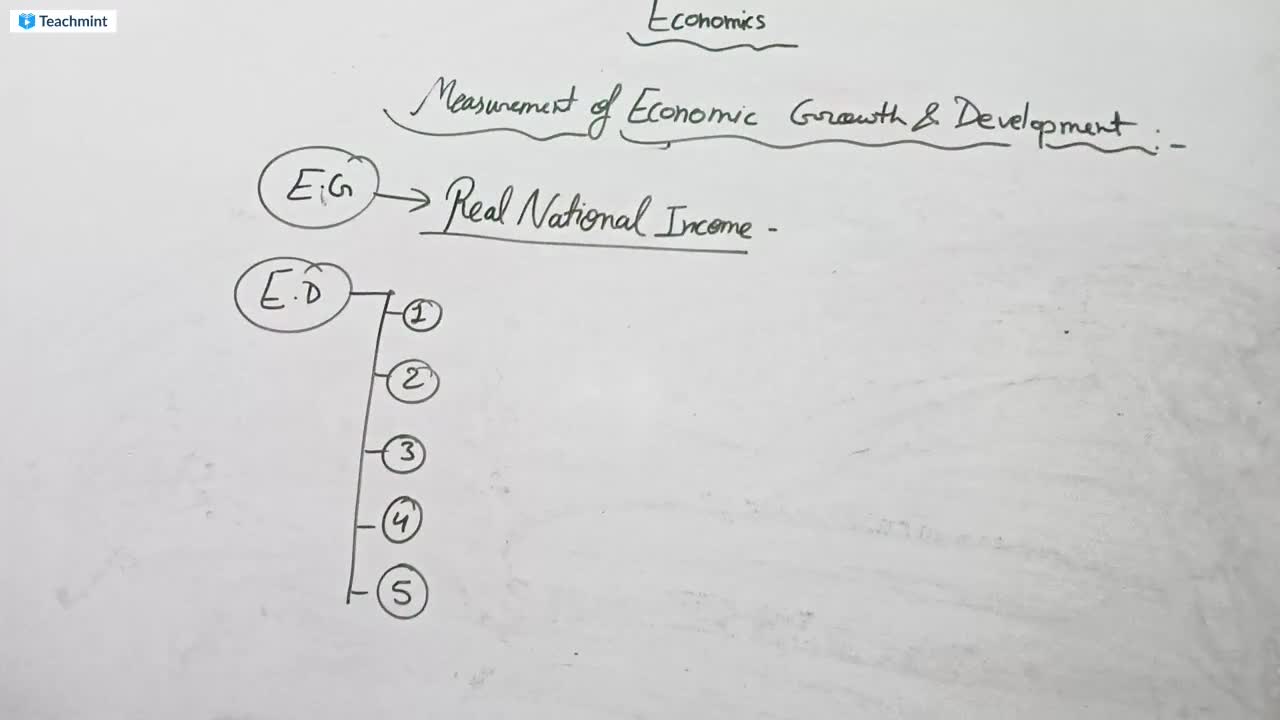 Teachmint
Economics
Measurement of Economic Growth & Development :-
E.G → Real National Income -
E.D
1
2
3
4
5